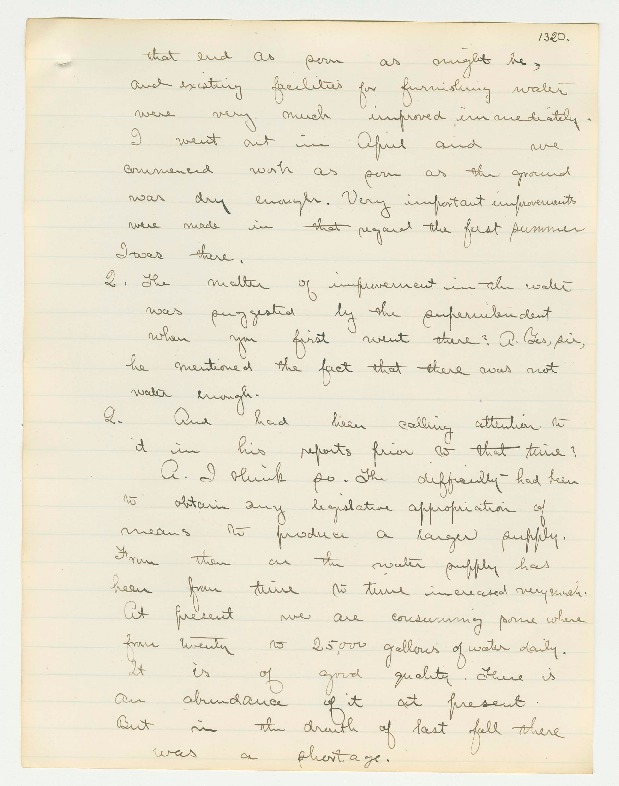 1320.
that end as soon as might be,
and existing facilities for furnishing water
were very much improved immediately.
I went out in April and we
commenced work as soon as the ground
was dry enough. Very important improvements
were made in that regard the first summer
I was there.
Q. The matter of improvement in the water
was suggested by the superintendent
when you first went there? A. Yes, sir,
he mentioned the fact that there was not
water enough.
Q. And had been calling attention to
it in his reports prior to that time?
A. I think so. The difficulty had been
to obtain any legislative appropriation of
means to produce a larger supply.
From then on the water supply has
been from time to time increased very much.
At present we are consuming some where
from twenty to 25,000 gallons of water daily.
It is of good quality. There is
an abundance of it at present.
But in the drouth of last fall there
was a shortage.